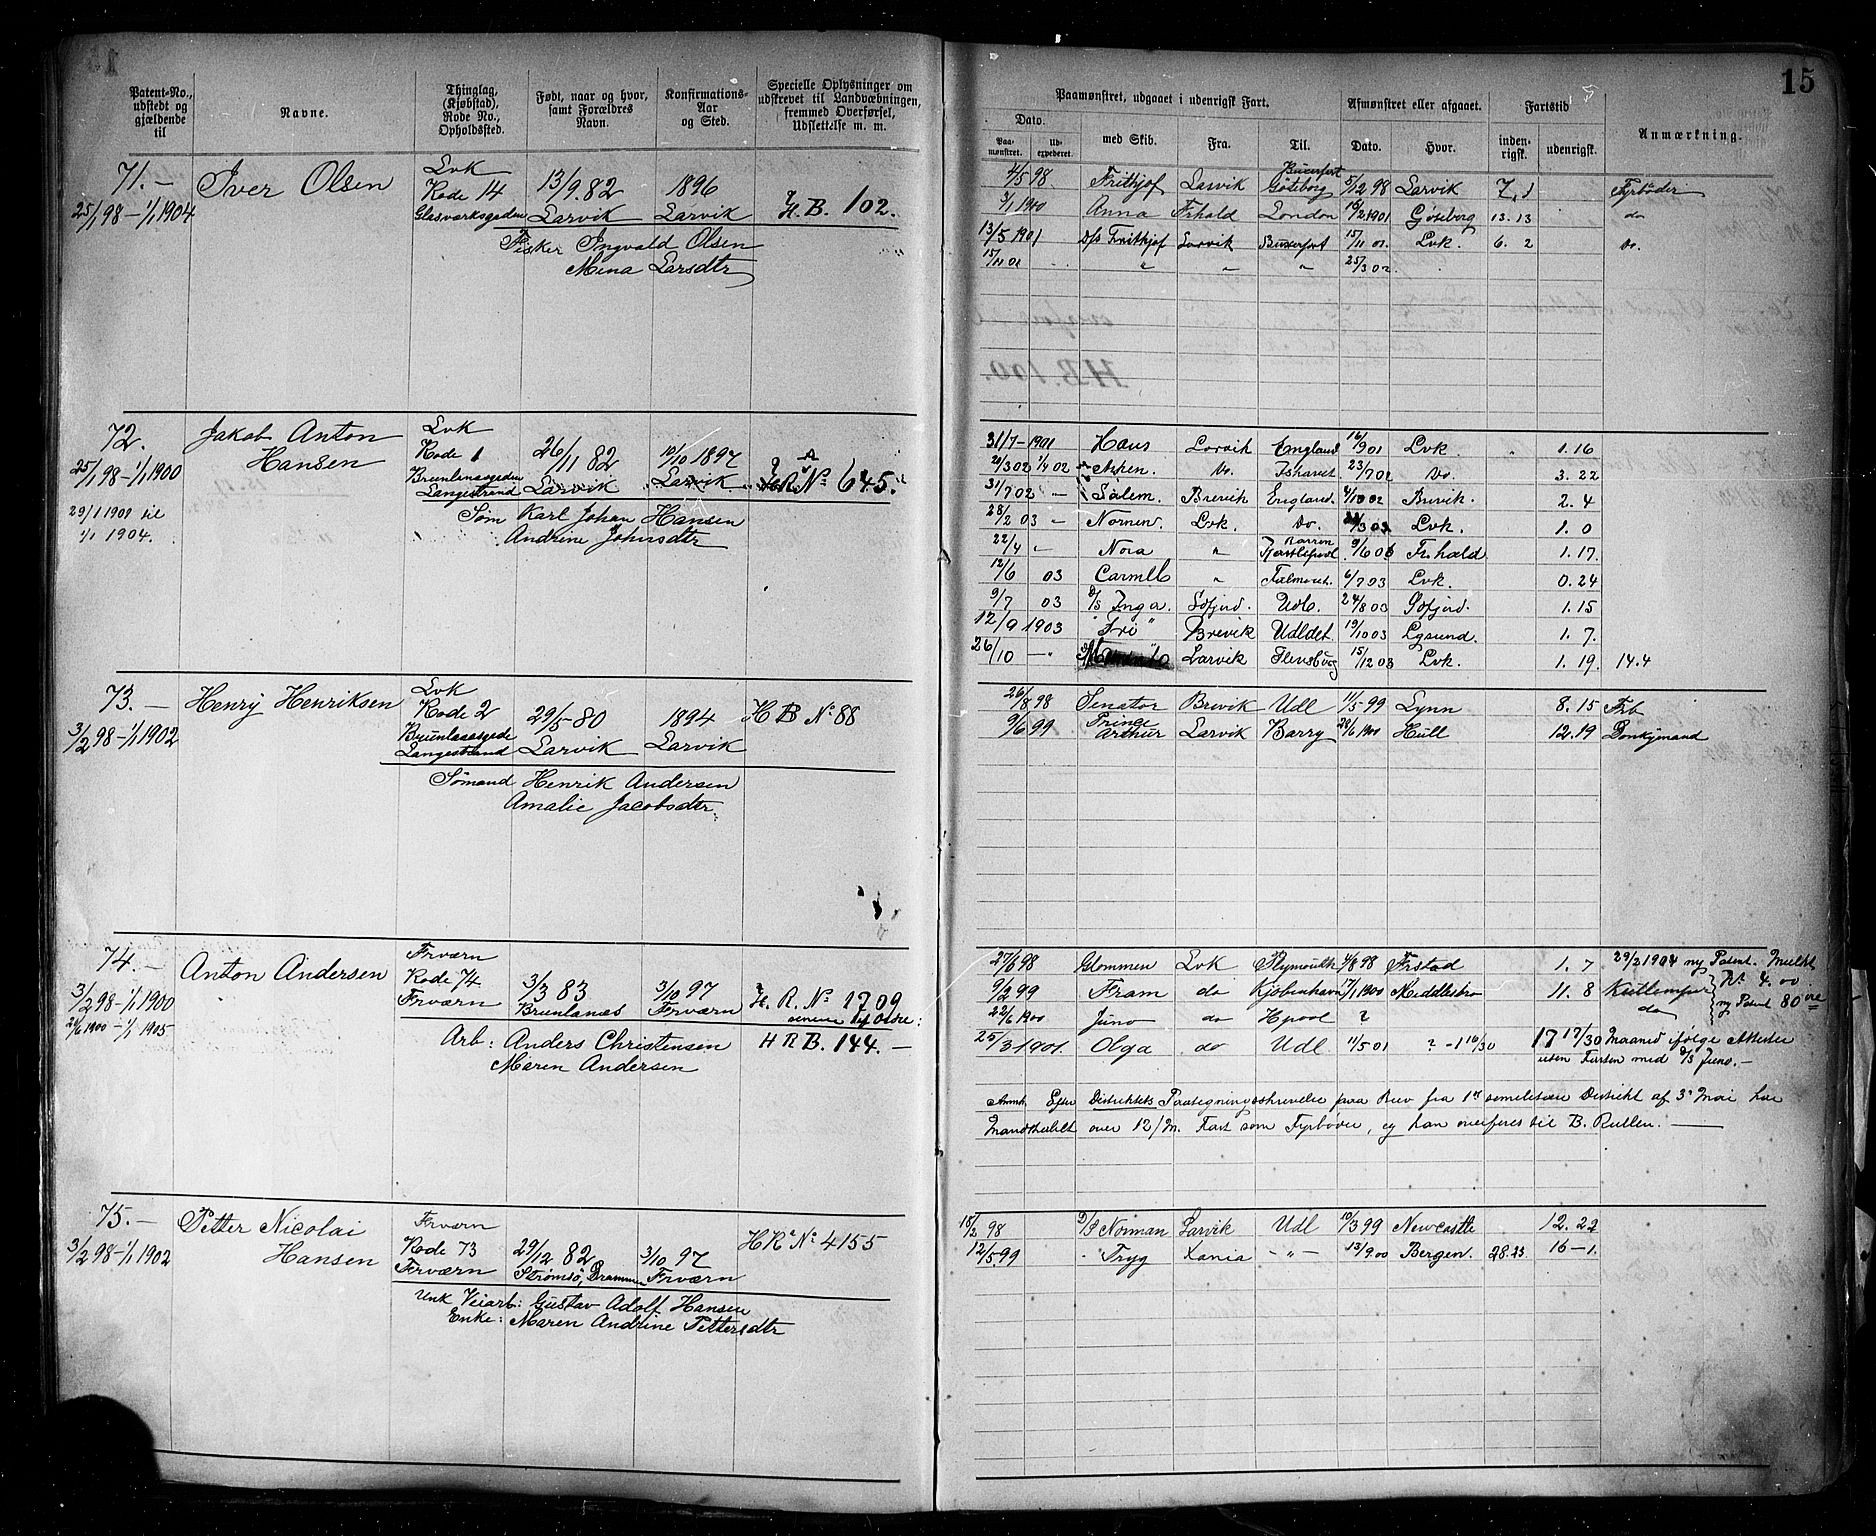 15
Patent-No., udstedt og gjældende til
Navne.
Thinglag, (Kjøbstad), Rode No., Opholdssted.
Født, naar og hvor, samt Forældres Navn.
Konfirmations-Aar og Sted.
Specielle Oplysninger om udskrevet til Landvæbningen, fremmed Overførsel, Udslettelse m. m.
Paamønstret, udgaaet i udenrigsk Fart.
Afmønstret eller afgaaet.
Fartstid
Anmærkning.
Dato.
Paa-mønstret.
Ud-expederet.
med Skib.
Fra.
Til.
Dato.
Hvor.
inden-rigsk.
udenrigsk.
71.-
25/1 98 - 1/1 1904
Iver Olsen
Lvk
Rode 14
Glasværksgaden
13/9. 82
Larvik
1896
Larvik
H. B. 102.
Fisker Ingvald Olsen
Mina Larsdtr
4/5 98. Frithjof Larvik Göteborg 5/12 98 Larvik 7,1 Fyrbøder
3/1 1900 Anna Frhald London 16/2 1901 Gøteborg 13. 13 do
13/5 1901 D/s Frithjof Larvik 15/11 01. Lvk. 6. 2 Do.
15/11 01 " " " 25/3 02.
72.
25/1 98 - 1/1 1900
29/1 1901 til
1/1 1904.
Jakob Anton
Hansen
Lvk
Rode 1
Langestrand
26/11 82
Larvik
10/10 1897
Larvik
No 645.
Søm Karl Johan Hansen
Andrine Johnsdtr
31/7 - 1901 Hans Larvik England 16/9 01 Lvk. 1. 16
20/3 02 1/4 02 Do. Ishavet 23/7 02 Do. 3. 22
31/7 02 - Salem. Brevik England. 4/10 02 Brevik 2. 4
28/2 03 - Nornen. Lvk. Do. Lvk. 1. 0
22/4 " Nora " 9/6 03 Fr.hald 1. 17.
12/6 03 " Falmout. 6/7 03 Lvk. 0. 24
9/7 03 D/s Inga. Sofjord. Udl. 24/8 03 Sofjord. 1. 15
12/9 1903 "Fri" Brevik Udldet 19/10 03 Lgsund. 1. 7.
26/10 - " Larvik Flensburg 15/12 03 Lvk. 1. 19. 14.4
73.-
3/2 98 - 1/1 1902
Henry Henriksen
Lvk
Rode 2
Brunlanesgede
Langestrand
29/5 - 80
Larvik
1894
Larvik
H B No 88
Sømand Henrik Andersen
Amalie Jacobsdtr.
26/8 98 Senator Brevik Udl 11/5 99 Lynn 8. 15 Frb
9/6 99 Prince Arthur Larvik Barry 28/6 1900 Hull 12. 19 Donkymand
74.-
3/2 98 - 1/1 1900
21/6 1900 - 1/1 1905
Anton Andersen
Frværn
Rode 74
Frværn
3/3 83
Brunlanes
3/10 97
Frværn
H. R. No 1709
H R B. 144.-
Arb: Anders Christensen
Maren Andersen
27/6 98 Glommen Lvk Plymouth 4/8 98 Frstad 1. 7 29/2 1904 ny Patent. Mulkt
9/2 99 Fram do Kjøbenhavn 17/1 1900 Middlesbro 11. 8 Kullemper Kr. 4. 00.
22/6 1900 Juno do Hpool ? do ny Patent 80 øre
25/3 1901. Olga do Udl 11/5 01 ? - 1 16/30 17 17/30 Maaned ifølge Attester
uden Farten med D/s Juno.-
Anm. Efter Distriktets Paategningsskrivelse paa Brev fra 1ste Distrikt af 3' Mai har
Mandskabet over 12/M. Fart som Fyrbøder, og han overføres til B. Rullen.-
75.-
3/2 98 - 1/1 1902
Petter Nicolai
Hansen
Frværn
Rode 73
Frværn
29/12 82
Strømsö, Drammen
3/10 97
Frværn
HR No 4155
Unk Veiarb: Gustav Adolf Hansen
Enke: Maren Andrine Pettersdtr
15/2 98 D/S Norman Larvik Udl 10/3 99 Newcastle 12. 22
12/5 99 " Tryg Xania - " - 13/9 00 Bergen. 28. 23 16 - 1.